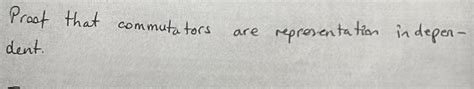 Proof that commutators are representation indepen-
dent.